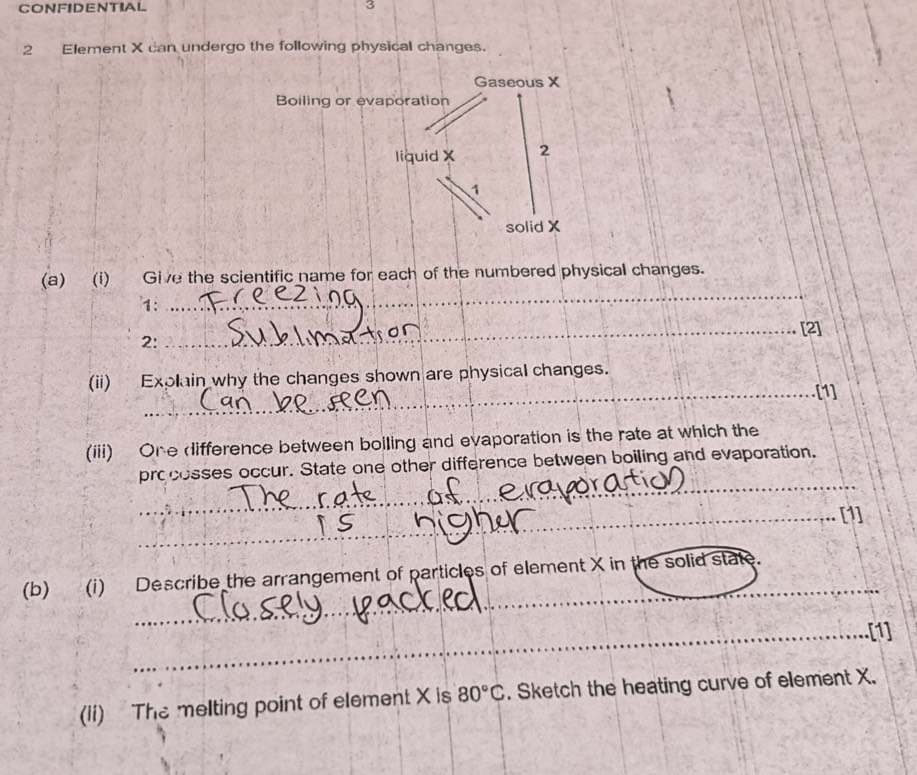 CONFIDENTIAL 3
2 Element X can undergo the following physical changes.
Gaseous X
Boiling or evaporation
liquid X
2
1
solid X
(a) (i) Give the scientific name for each of the numbered physical changes.
1: Freezing
2: Sublimation [2]
(ii) Explain why the changes shown are physical changes.
Can be seen [1]
(iii) One difference between boiling and evaporation is the rate at which the
processes occur. State one other difference between boiling and evaporation.
The rate of evaporation
is higher [1]
(b) (i) Describe the arrangement of particles of element X in the solid state.
Closely packed
[1]
(ii) The melting point of element X is 80°C. Sketch the heating curve of element X.